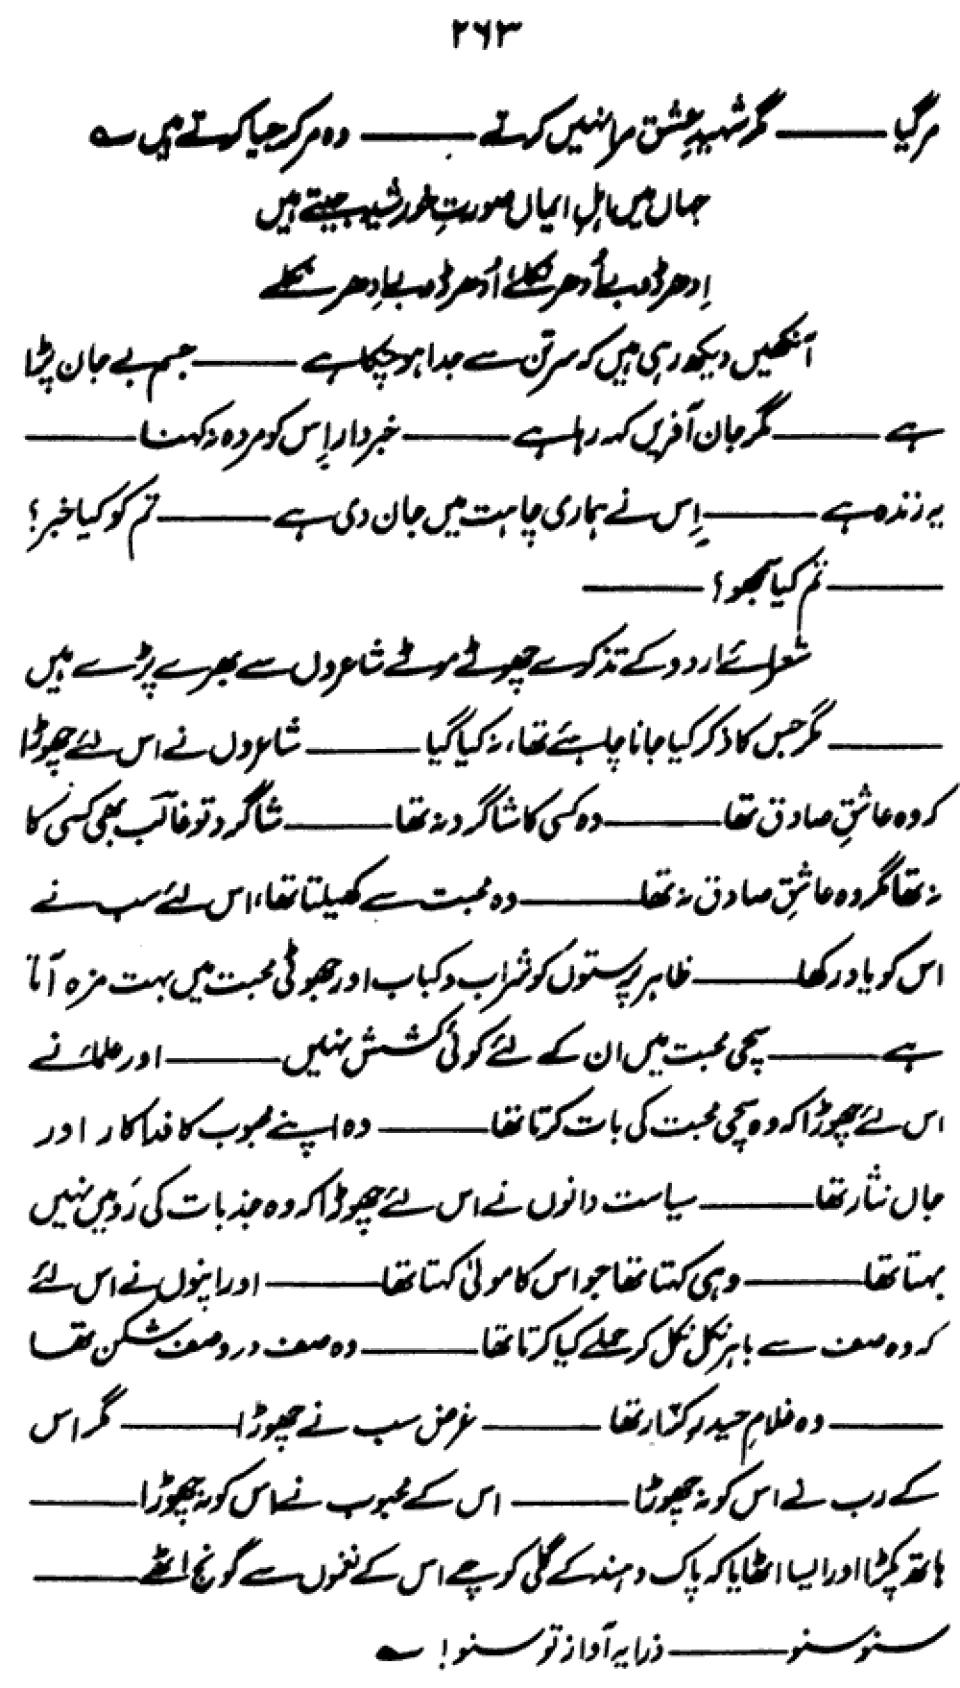 ۲۶۳
مر گیا ——— مگر شہیدِ عشق مرا نہیں کرتے ——— وہ مر کر جیا کرتے ہیں ؎
جہاں میں اہلِ ایماں صورتِ خورشید جیتے ہیں
اِدھر ڈوبے اُدھر نکلے اُدھر ڈوبے اِدھر نکلے
آنکھیں دیکھ رہی ہیں کہ سر تن سے جدا ہو چکا ہے ——— جسم بے جان پڑا
ہے ——— مگر جان آفریں کہہ رہا ہے ——— خبردار اِس کو مردہ نہ کہنا ———
یہ زندہ ہے ——— اِس نے ہماری چاہت میں جان دی ہے ——— تم کو کیا خبر؟
——— تم کیا سمجھو؟ ———
شعرائے اردو کے تذکرے چھوٹے موٹے شاعروں سے بھرے پڑے ہیں
——— مگر جس کا ذکر کیا جانا چاہئے تھا، نہ کیا گیا ——— شاعروں نے اس لئے چھوڑا
کہ وہ عاشقِ صادق تھا ——— وہ کسی کا شاگرد نہ تھا ——— شاگرد تو غالب بھی کسی کا
نہ تھا مگر وہ عاشقِ صادق نہ تھا ——— وہ محبت سے کھیلتا تھا، اس لئے سب نے
اس کو یاد رکھا ——— ظاہر پرستوں کو شراب و کباب اور جھوٹی محبت میں بہت مزہ آتا
ہے ——— سچی محبت میں ان کے لئے کوئی کشش نہیں ——— اور علماء نے
اس لئے چھوڑا کہ وہ سچی محبت کی بات کرتا تھا ——— وہ اپنے محبوب کا فداکار اور
جاں نثار تھا ——— سیاست دانوں نے اس لئے چھوڑا کہ وہ جذبات کی رَو میں نہیں
بہتا تھا ——— وہی کہتا تھا جو اس کا مولیٰ کہتا تھا ——— اور اپنوں نے اس لئے
کہ وہ صف سے باہر نکل نکل کر حملے کیا کرتا تھا ——— وہ صف در و صف شکن تھا
——— وہ غلامِ حیدرِ کرّار تھا ——— غرض سب نے چھوڑا ——— مگر اس
کے رب نے اس کو نہ چھوڑا ——— اس کے محبوب نے اس کو نہ چھوڑا ———
ہاتھ پکڑا اور ایسا اٹھایا کہ پاک و ہند کے گلی کوچے اس کے نغموں سے گونج اٹھے ———
سنو سنو ——— ذرا یہ آواز تو سنو! ؎